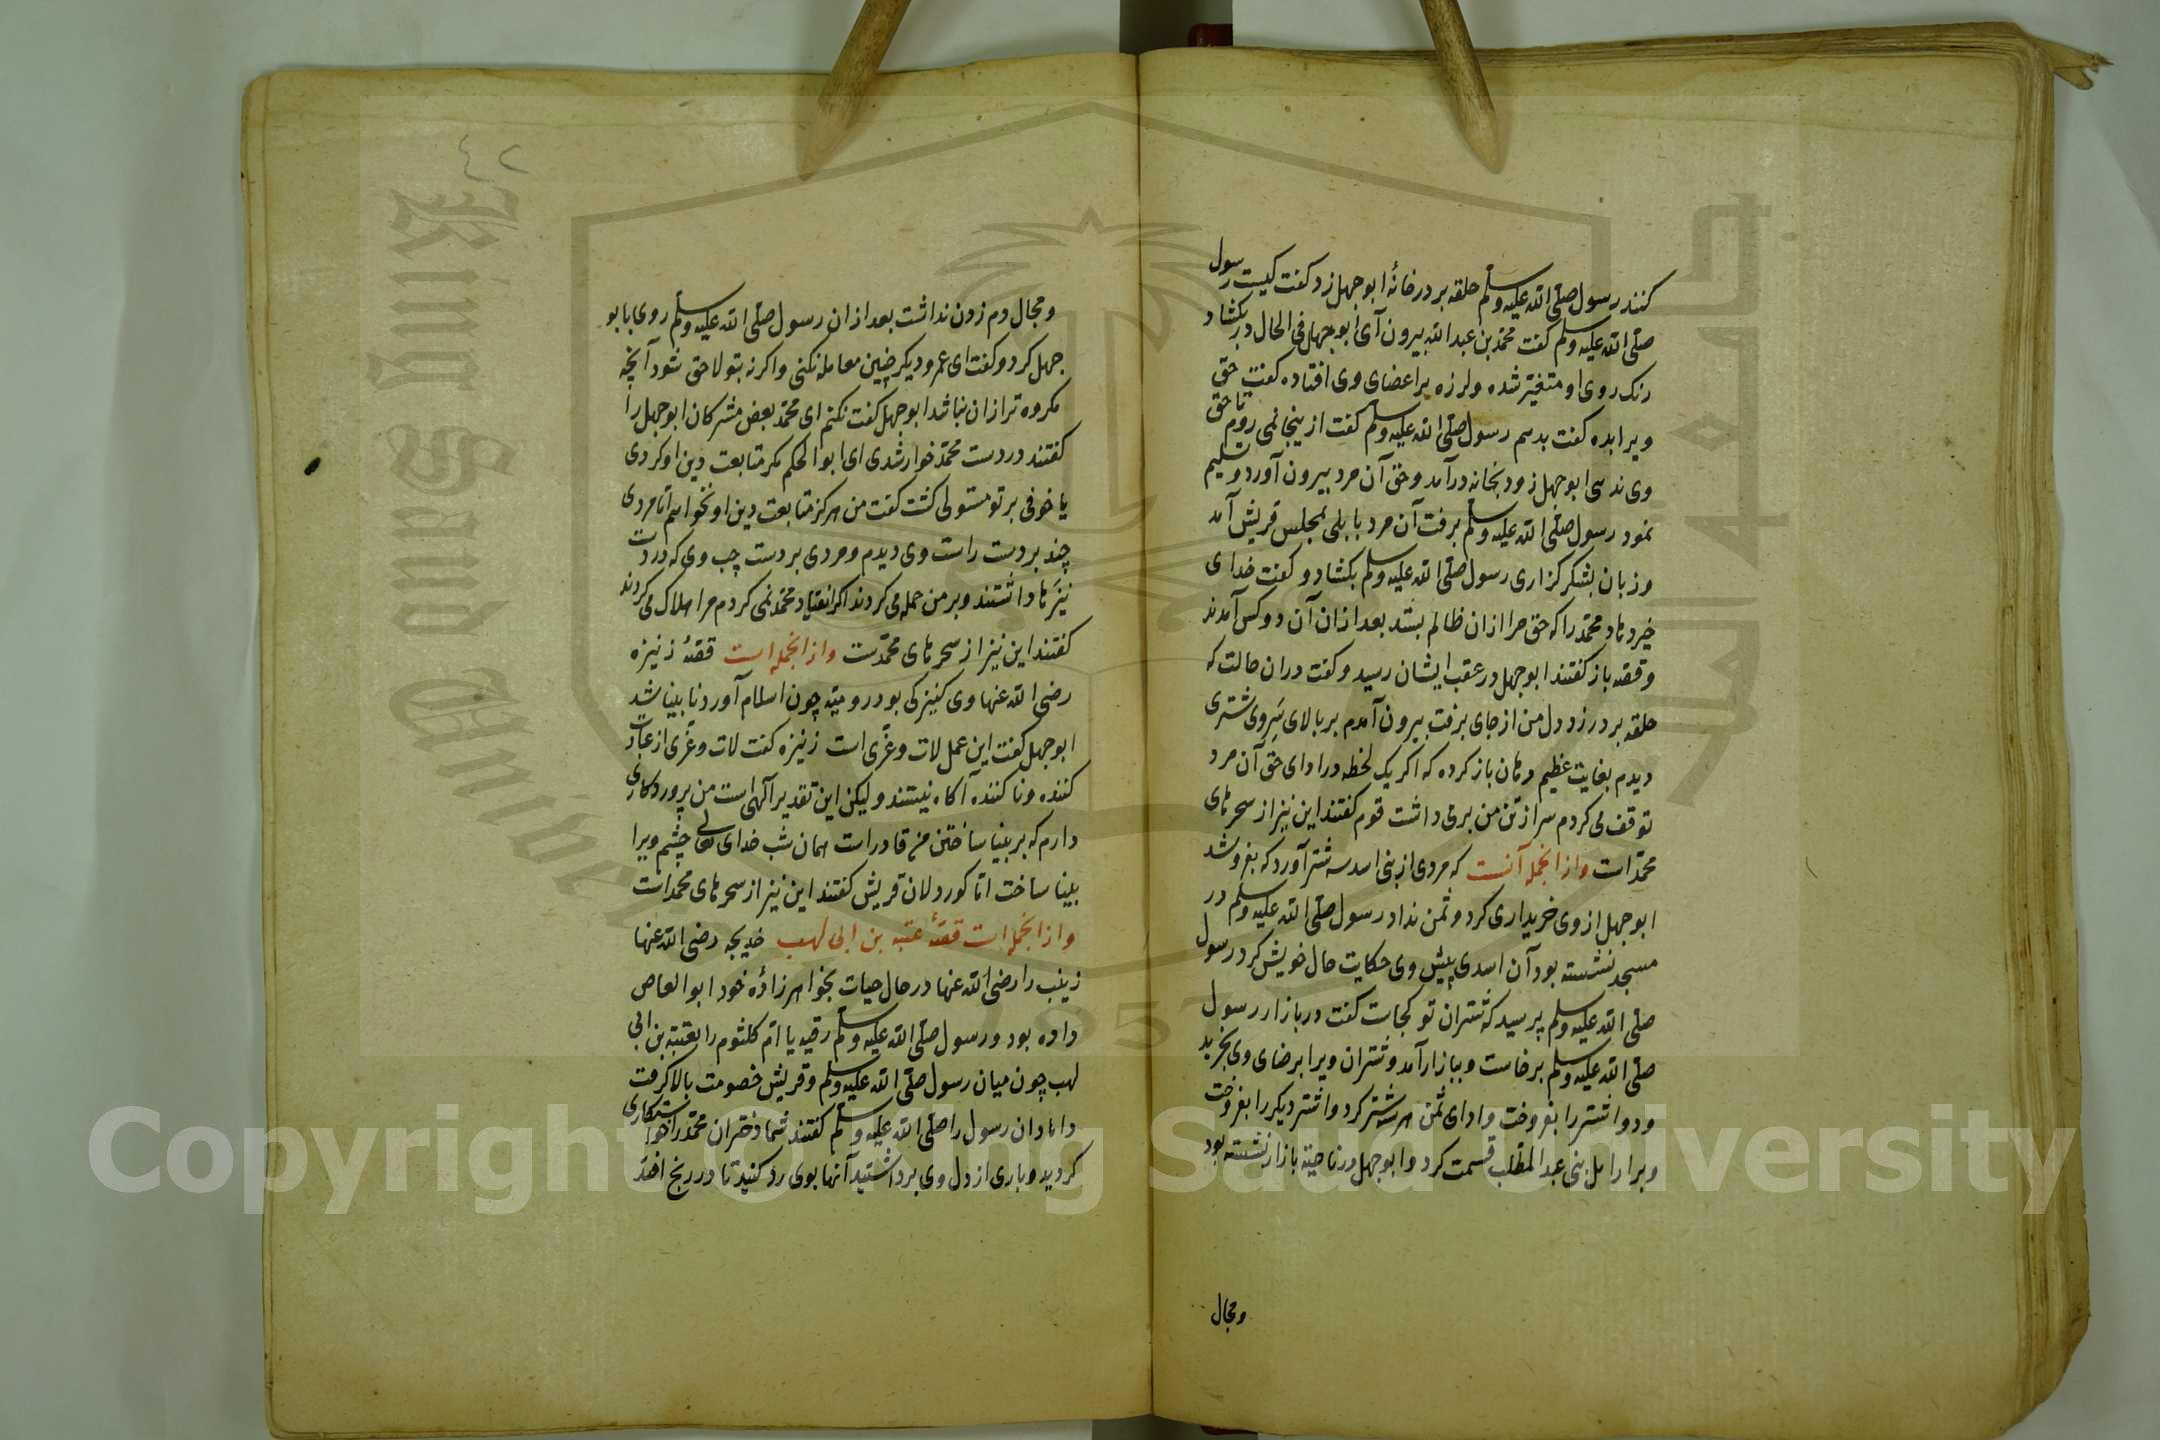 کنند رسول صلی الله علیه وسلم حلقه بر در خانهٔ ابوجهل زد کفت کیست رسول
صلی الله علیه وسلم کفت محمد بن عبد الله بیرون آی ابوجهل فی الحال در بکشاد
رنک روی او متغیر شده ولرزه بر اعضای وی افتاده کفت حق
ویرا بده کفت بدهم رسول صلی الله علیه وسلم کفت ازینجا نمی روم تا حق
وی ندهی ابوجهل زود بخانه درآمد وحق آن مرد بیرون آورد وتسلیم
نمود رسول صلی الله علیه وسلم برفت آن مرد بمجلس قریش آمد
وزبان بشکر کزاری رسول صلی الله علیه وسلم بکشاد وکفت خدای
خیر دهاد محمد را که حق مرا ازان ظالم بستد بعد ازان آن دو کس آمدند
وقصه باز کفتند ابوجهل در عقب ایشان رسید وکفت دران حالت که
حلقه بر در زد دل من از جای برفت بیرون آمدم بر بالای سر وی شتری
دیدم بغایت عظیم دهان باز کرده که اکر یک لحظه در ادای حق آن مرد
توقف می کردم سر از تن من بر می داشت قوم کفتند این نیز از سحر های
محمد است واز انجمله آنست که مردی از بنی اسد سه شتر آورد که بفروشد
ابوجهل از وی خریداری کرد وثمن نداد رسول صلی الله علیه وسلم در
مسجد نشسته بود آن اسدی پیش وی حکایت حال خویش کرد رسول
صلی الله علیه وسلم پرسید که شتران تو کجاست کفت در بازار رسول
صلی الله علیه وسلم برخاست وببازار آمد وشتران ویرا برضای وی بخرید
ودو اشتر را بفروخت وادای ثمن هر سه شتر کرد واشتر دیکر را بفروخت
وبر ارامل بنی عبد المطلب قسمت کرد وابوجهل در ناحیه بازار نشسته بود
ومجال
٤٢
ومجال دم زدن نداشت بعد ازان رسول صلی الله علیه وسلم روی بابو
جهل کرد وکفت ای عمرو دیکر چنین معامله نکنی واکرنه بتو لاحق شود آنچه
مکروه تر ازان نباشد ابوجهل کفت نکنم ای محمد بعض مشرکان ابوجهل را
کفتند در دست محمد خوار شدی ای ابو الحکم مکر متابعت دین او کردی
یا خوفی بر تو مستولی کشت کفت من هرکز متابعت دین او نخواهم اما مردی
چند بر دست راست وی دیدم ومردی بر دست چپ وی که در دست
نیزه ها داشتند وبر من حمله می کردند اکر انقیاد محمد نمی کردم مرا هلاک می کردند
کفتند این نیز از سحر های محمدست واز انجمله است قصهٔ زنیزه
رضی الله عنها وی کنیزکی بود رومیه چون اسلام آورد نابینا شد
ابوجهل کفت این عمل لات وعزی است زنیزه کفت لات وعزی از عبادت
کننده ونا کننده آکاه نیستند ولیکن این تقدیر الهی است من پروردکاری
دارم که بر بینا ساختن من قادر است همان شب خدای تعالی چشم ویرا
بینا ساخت اما کوردلان قریش کفتند این نیز از سحر های محمد است
واز انجمله است قصهٔ عتبه بن ابی لهب خدیجه رضی الله عنها
زینب را رضی الله عنها در حال حیات بخواهر زادهٔ خود ابو العاص
داده بود ورسول صلی الله علیه وسلم رقیه یا ام کلثوم را بعتبه بن ابی
لهب چون میان رسول صلی الله علیه وسلم وقریش خصومت بالا کرفت
دامادان رسول را صلی الله علیه وسلم کفتند شما دختران محمد را خواستکاری
کردید وباری از دل وی برداشتید آنها بوی رد کنید تا در رنج افتد
Copyright © King Saud University